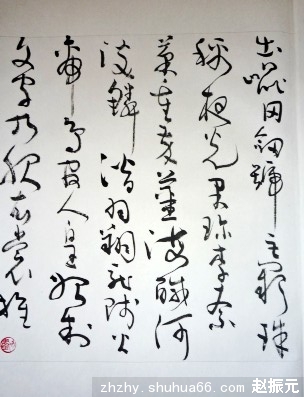 出崑岡劍號巨闕珠
稱夜光果珍李柰
菜重芥薑海鹹河
淡鱗潛羽翔龍師火
帝鳥官人皇始制
文字乃服衣裳推
zhzhy.shuhua66.com 赵振元